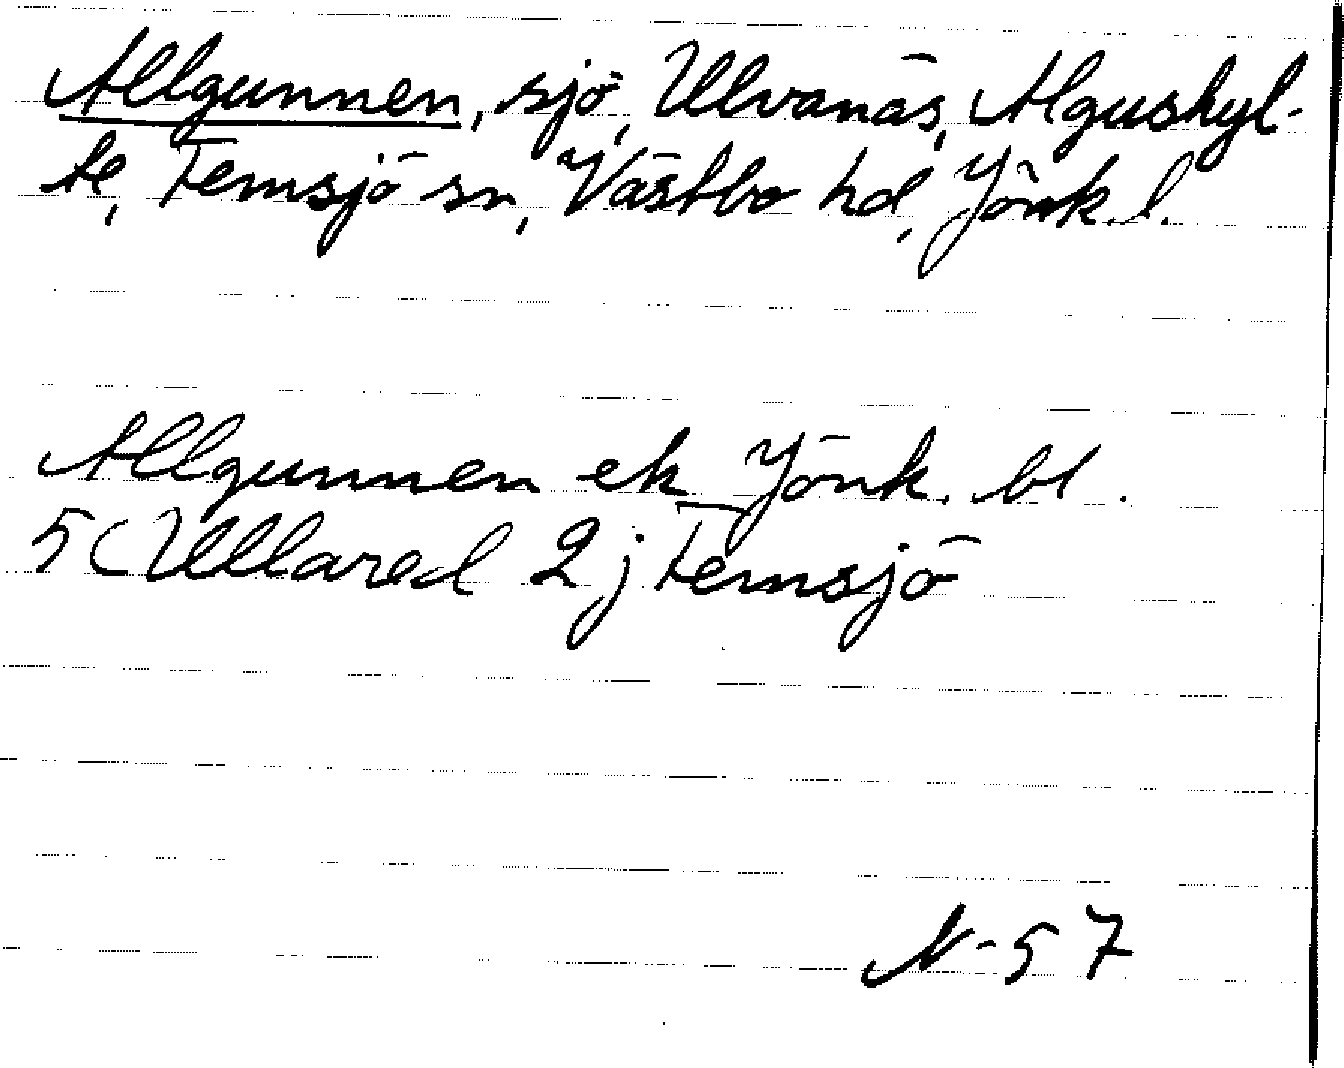 Allgunnen, sjö, Ulvanäs, Algushyl-
te, Femsjö sn, Västbo hd, Jönk. l.
Allgunnen ek Jönk. bl.
5 (Ullared 2j Femsjö
N-57